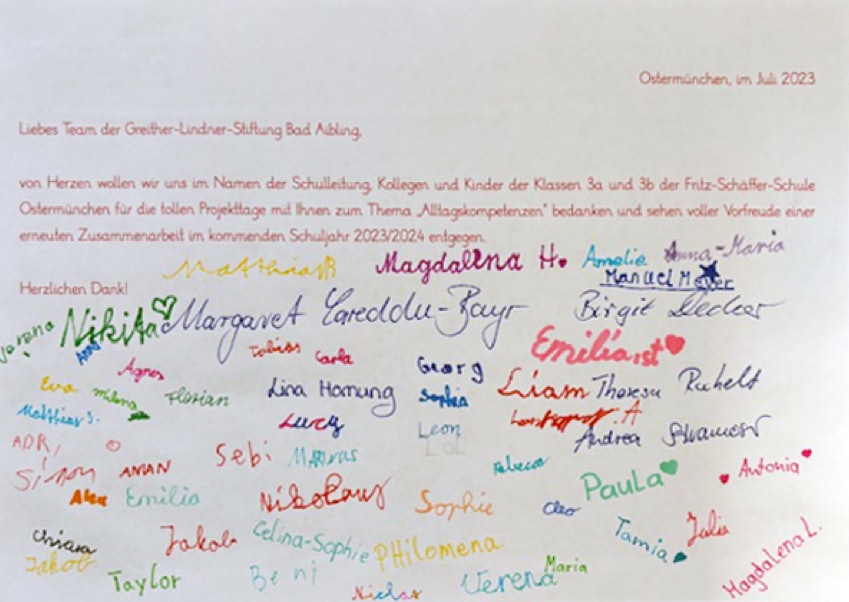 Ostermünchen, im Juli 2023
Liebes Team der Greither-Lindner-Stiftung Bad Aibling,
von Herzen wollen wir uns im Namen der Schulleitung, Kollegen und Kinder der Klassen 3a und 3b der Fritz-Schäffer-Schule
Ostermünchen für die tollen Projekttage mit Ihnen zum Thema „Alltagskompetenzen" bedanken und sehen voller Vorfreude einer
erneuten Zusammenarbeit im kommenden Schuljahr 2023/2024 entgegen.
Matthias B
Magdalena H.
Amelie
Anna-Maria
Manuel Meyer
Herzlichen Dank!
Verena
Nikita
Margaret Careddu-Bayr
Birgit Decker
Tobias
Carla
Emilia ist
Agnes
Georg
Eva
Milena
Florian
Lina Hornung
Sophia
Liam
Theresa
Matthias S.
Lucy
Leon
LOL
A
Andrea
ADRI
Simon
AMAN
Sebi
Rebecca
Paula
Antonia
Emilia
Nikolaus
Sophie
Cleo
Tamia
Julia
Chiara
Jakob
Jakob
Celina-Sophie
PHilomena
Magdalena L.
Taylor
Beni
Niclas
Verena
Maria